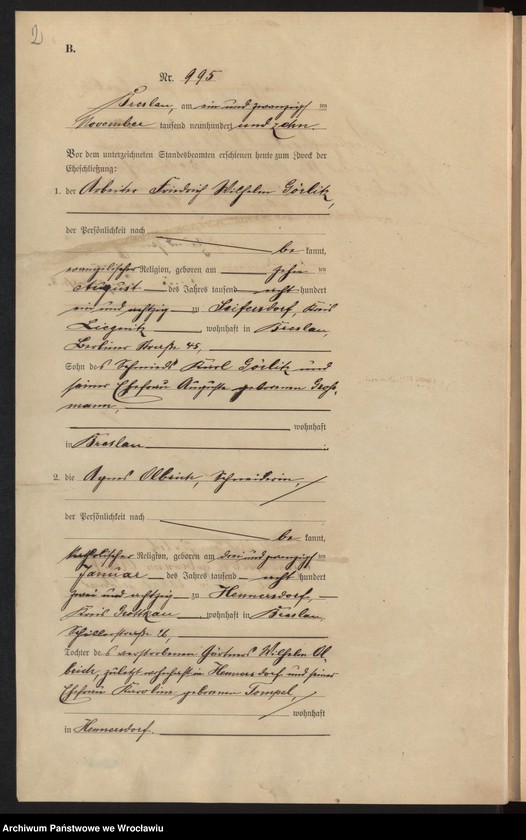 2
B.
Nr. 995
Breslau, am ein und zwanzigsten
November tausend neunhundert und zehn.
Vor dem unterzeichneten Standesbeamten erschienen heute zum Zweck der
Eheschließung:
1. der Arbeiter Friedrich Wilhelm Görlitz,
der Persönlichkeit nach
be kannt,
evangelischer Religion, geboren am zehn ten
August des Jahres tausend acht hundert
ein und achtzig zu Seifersdorf, Kreis
Liegnitz, wohnhaft in Breslau,
Berliner Straße 45,
Sohn des Schmieds Karl Görlitz und
seiner Ehefrau Auguste geborenen Groß-
mann,
wohnhaft
in Breslau.
2. die Agnes Olbrich, Schneiderin,
der Persönlichkeit nach
be kannt,
katholischer Religion, geboren am drei und zwanzigsten
Januar des Jahres tausend acht hundert
zwei und achtzig zu Hennersdorf,
Kreis Grottkau, wohnhaft in Breslau,
Tochter des verstorbenen Gärtners Wilhelm Ol-
brich, zuletzt wohnhaft in Hennersdorf und seiner
Ehefrau Karoline, geborenen Tompel,
wohnhaft
in Hennersdorf.
Archiwum Państwowe we Wrocławiu